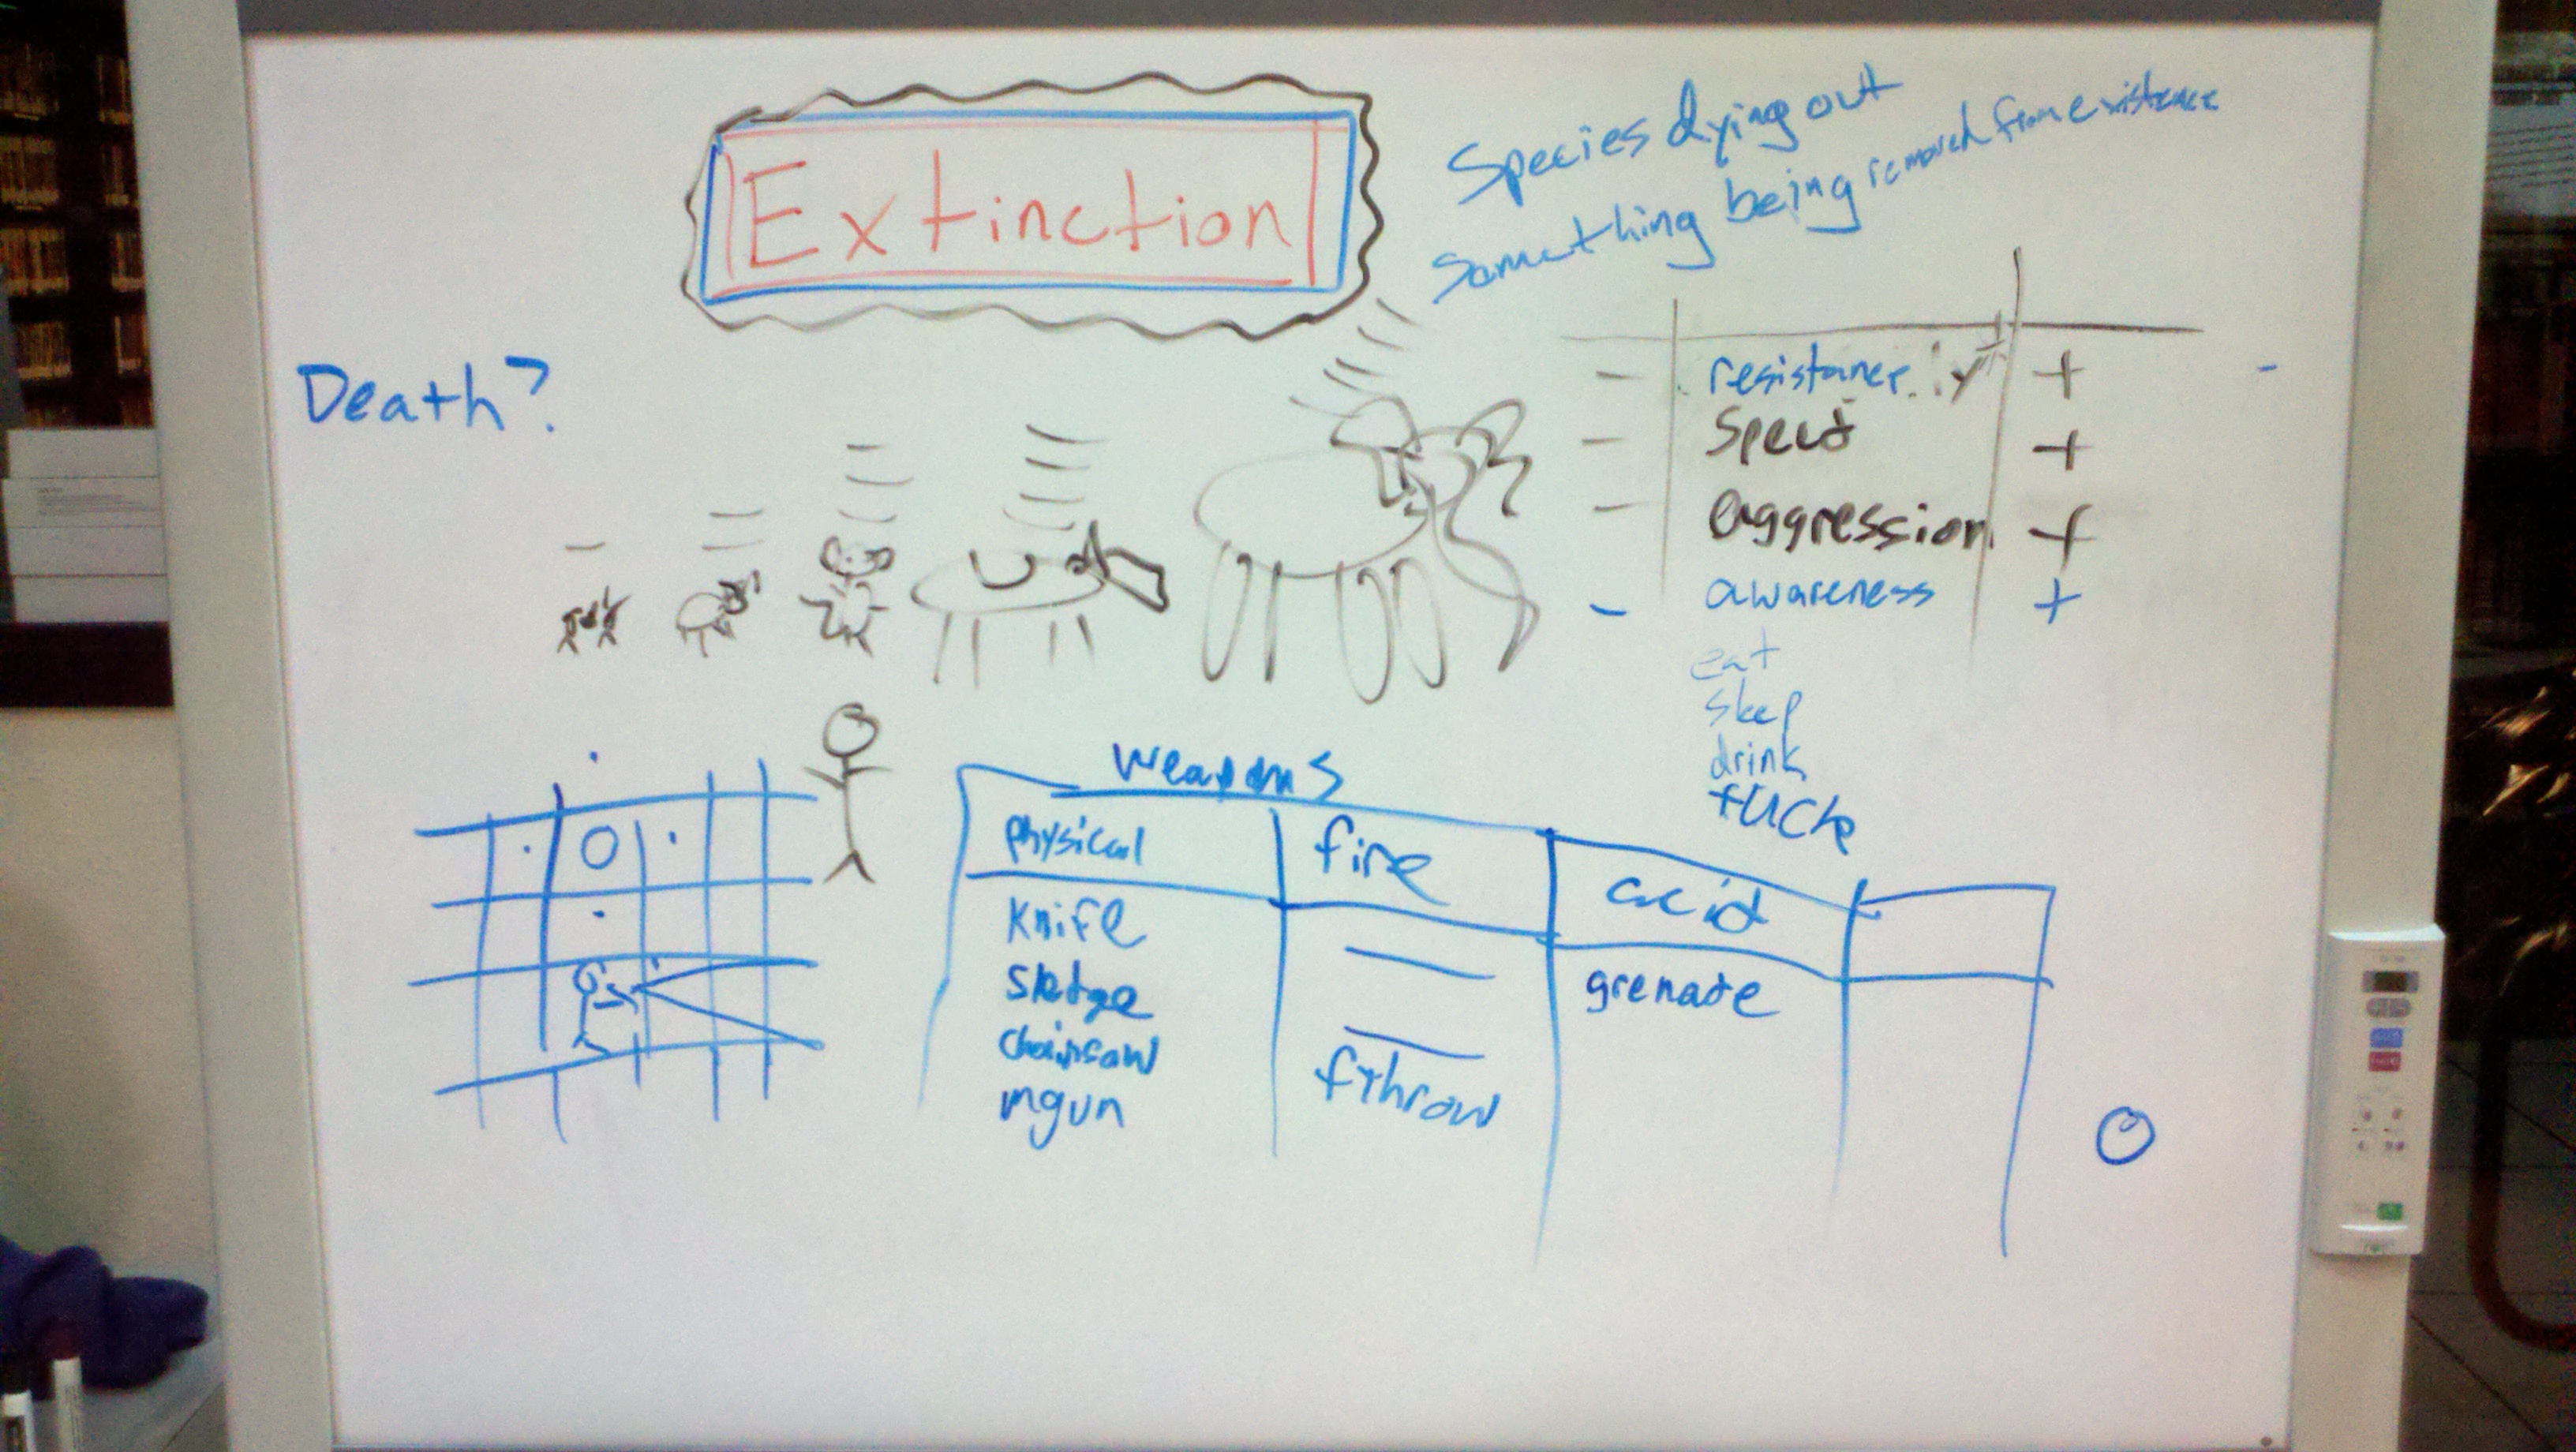 Extinction
Species dying out
Something being removed from existence
Death?
- resistance +
- Speed +
- aggression +
- awareness +
eat
sleep
drink
fuck
weapons
physical fire acid
knife
sledge
chainsaw
mgun
fthrow
grenade